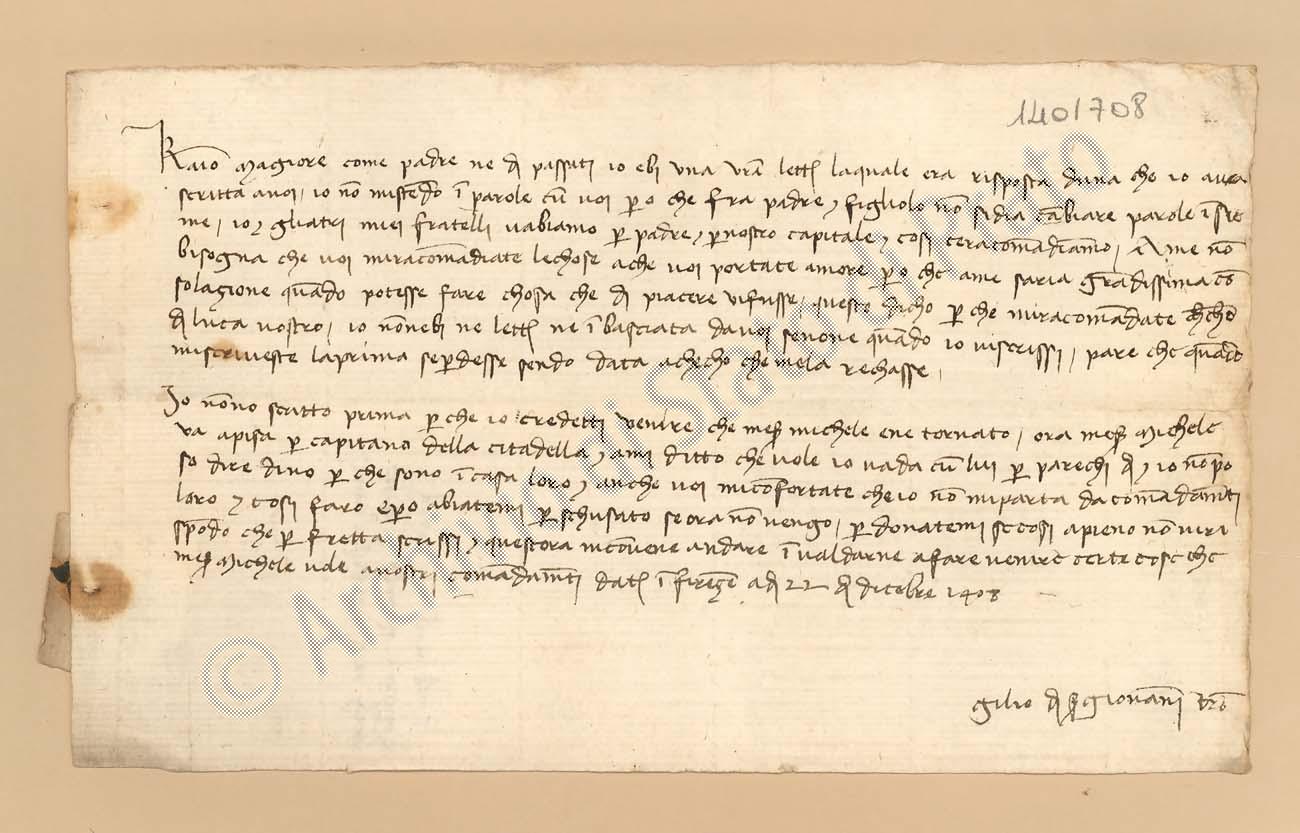 1401708
Karo Magiore come padre ne di passati io ebi una vra lettera laquale era risposta duna che io avea
scritta avoi, io nō mistēdo ī parole cū voi però che fra padre e figliolo nō sidia cābiare parole īsie
me, io e gliatri miei fratelli vabiamo per padre e per nostro capitale e cosi ceracomādiamo, A me nō
bisogna che voi miracomādiate lechose ache voi portate amore però che ame saria grādissima cō
solagione quādo potesse fare chosa che di piacere vifusse, questo dicho perche miracomādate
di luca vostro, io nōnebi ne lettera ne ībasciata davoi senone quādo io viscrissi, pare che quādo
miscriveste laprima seperdesse sendo data achecho chemela rechasse,
Io nōno scritto prima perche io credetti venire che messer michele ene tornato, ora messer Michele
va apisa per capitano della citadella e ami ditto che vole io vada cū lui per parechi di e io nō po
so dire dino perche sono ī casa loro e anche voi micōfortate cheio nō miparta dacomādamēti
loro e cosi faro epero abiatemi per schusato seora nō vengo, perdonatemi secosi apieno nō viri
spōdo che per fretta scrissi e questora mcōvene andare ī valdarne afare venire certe cose che
messer Michele vole avostri comādamēti data ī firēçe adi 22 di dicēbre 1408
gilio di ser giovāni vro
© Archivio di Stato di Prato